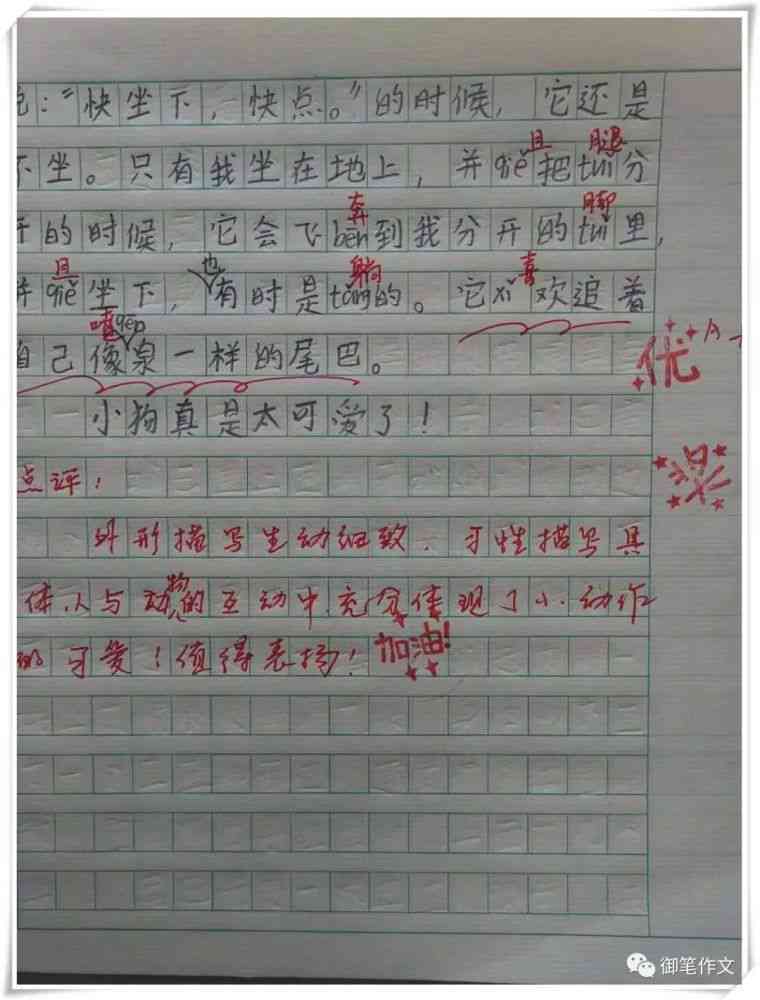 且 腿
说：“快坐下，快点。”的时候，它还是
不坐。只有我坐在地上，并qiě把tuǐ分
奔 脚
开的时候，它会飞bēn到我分开的tuǐ里，
且 也 躺 喜
并qiě坐下，有时是tǎng的。它xǐ欢追着
喷
自己像泉一样的尾巴。
优
小狗真是太可爱了！
点评！
外形描写生动细致，习性描写具
体，人与动物的互动中，充分体现了小动作
的可爱！值得表扬！加油!
御笔作文